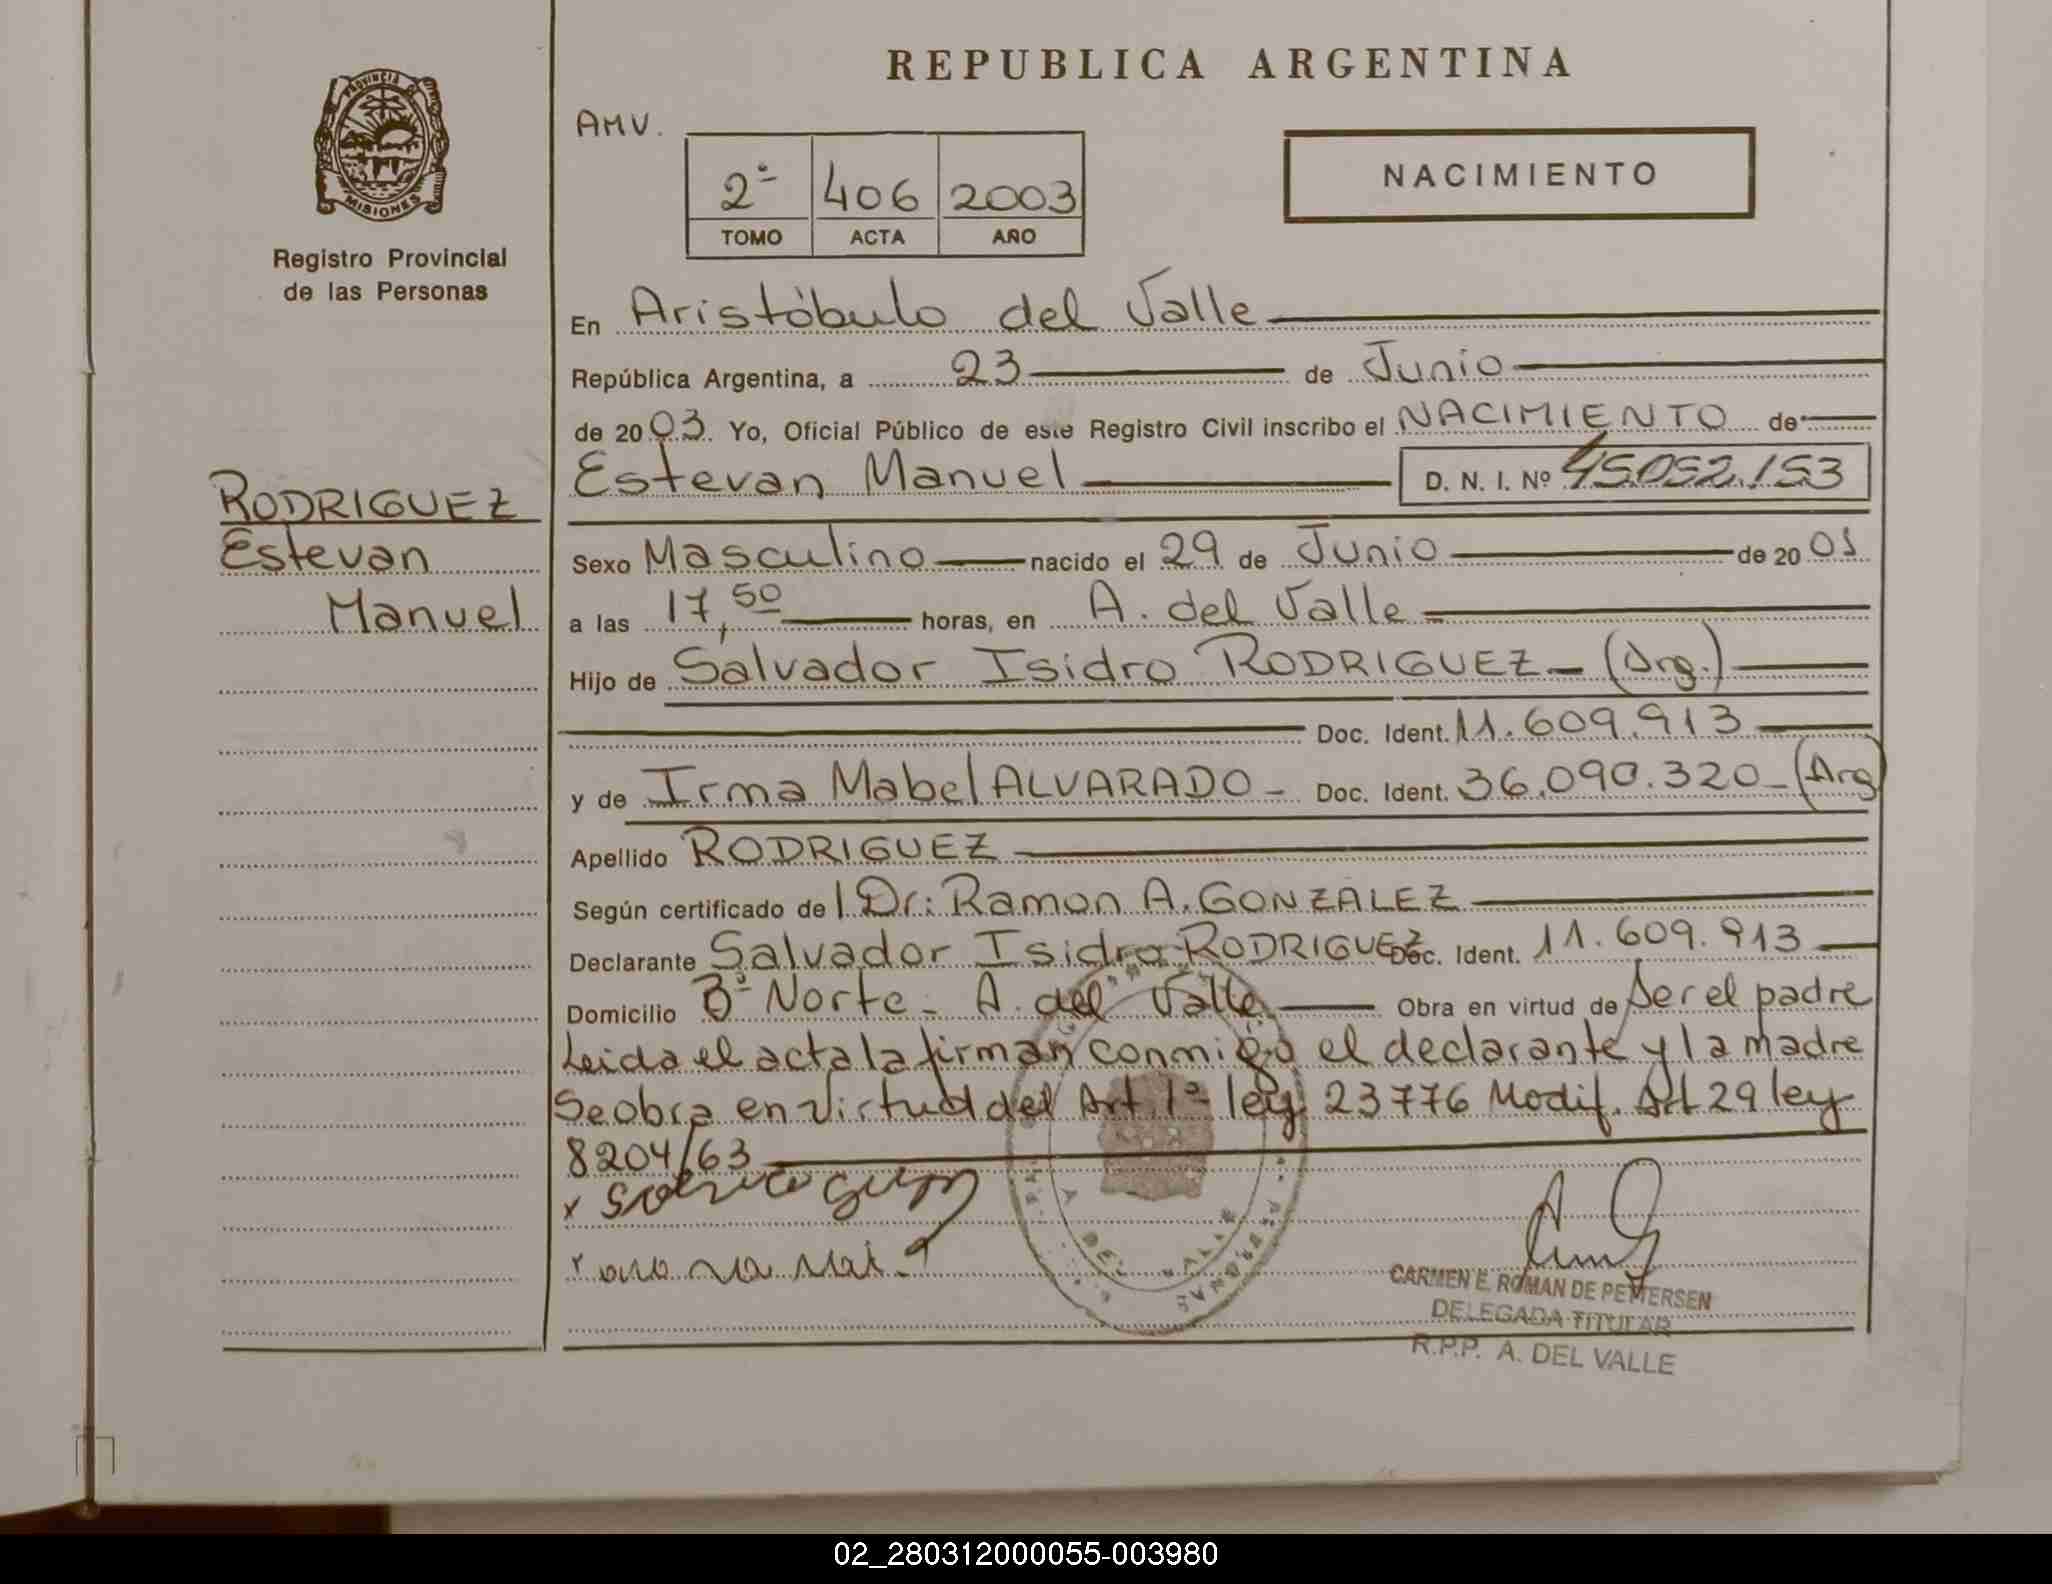 REPUBLICA ARGENTINA
PROVINCIA DE
MISIONES
Registro Provincial
de las Personas
AMV.
2º 406 2003
TOMO ACTA AÑO
NACIMIENTO
En Aristóbulo del Valle
República Argentina, a 23 de Junio
de 2003. Yo, Oficial Público de este Registro Civil inscribo el NACIMIENTO de
Estevan Manuel D. N. I. Nº 45.052.153
RODRIGUEZ
Estevan
Manuel
Sexo Masculino nacido el 29 de Junio de 2001
a las 17,50 horas, en A. del Valle
Hijo de Salvador Isidro RODRIGUEZ - (Arg.)
Doc. Ident. 11.609.913
y de Irma Mabel ALVARADO - Doc. Ident. 36.090.320 - (Arg)
Apellido RODRIGUEZ
Según certificado de Dr: Ramon A. GONZALEZ
Declarante Salvador Isidro RODRIGUEZ Doc. Ident. 11.609.913
Domicilio Bº Norte - A. del Valle Obra en virtud de Ser el padre
Leida el acta la firman conmigo el declarante y la madre
Se obra en virtud del Art. 1º ley 23776 Modif. Art 29 ley
8204/63
A DEL VALLE
PERSONAS
CARMEN E. ROMAN DE PETTERSEN
DELEGADA TITULAR
R.P.P. A. DEL VALLE
02_280312000055-003980